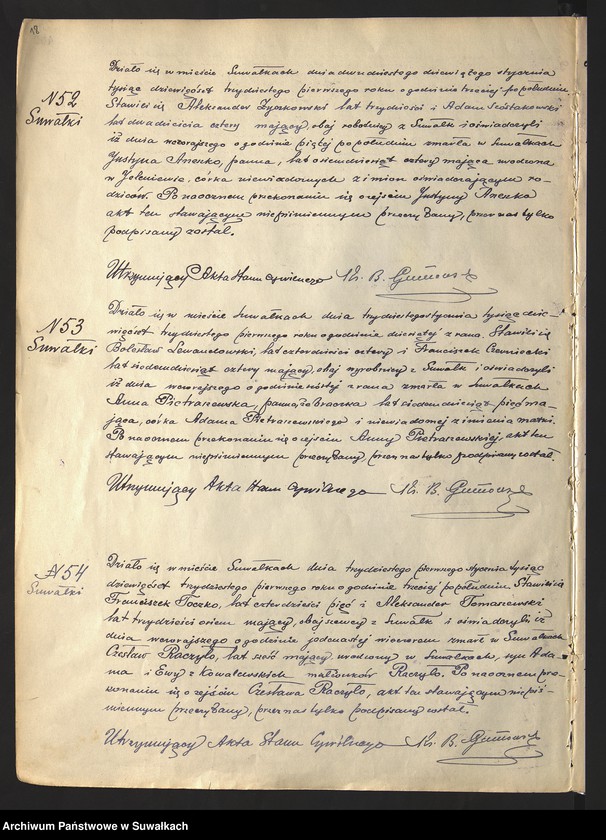 12
N 52
Suwałki
Działo się w mieście Suwałkach dnia dwudziestego dziewiątego stycznia
tysiąc dziewięćset trzydziestego pierwszego roku o godzinie trzeciej popołudniu
Stawili się Aleksander lat trzydzieści i Adam
lat dwadzieścia cztery mający, obaj robotnicy z Suwałk i oświadczyli
iż dnia wczorajszego o godzinie piątej popołudniu zmarła w Suwałkach
Justyna panna, lat osiemdziesiąt cztery mająca urodzona
w córka niewiadomych z imion oświadczającym ro-
dziców. Po naocznem przekonaniu się o zejściu Justyny
akt ten stawającym niepiśmiennym przeczytany, przez nas tylko
podpisany został.
Utrzymujący Akta Stanu Cywilnego Ks. B.
N 53
Suwałki
Działo się w mieście Suwałkach dnia trzydziestego stycznia tysiąc dzie-
więćset trzydziestego pierwszego roku o godzinie dziesiątej z rana. Stawili się
Bolesław Lewandowski, lat czterdzieści cztery i Franciszek Czerniecki
lat siedemdziesiąt cztery mający, obaj wyrobnicy z Suwałk i oświadczyli
iż dnia wczorajszego o godzinie szóstej z rana zmarła w Suwałkach
Anna Pietraszewska, panna, żebraczka lat siedemdziesiąt pięć ma-
jąca, córka Adama Pietraszewskiego i niewiadomej z imienia matki.
Po naocznem przekonaniu się o zejściu Anny Pietraszewskiej, akt ten
stawającym niepiśmiennym przeczytany, przez nas tylko podpisany został.
Utrzymujący Akta Stanu Cywilnego Ks. B.
N 54
Suwałki
Działo się w mieście Suwałkach dnia trzydziestego pierwszego stycznia tysiąc
dziewięćset trzydziestego pierwszego roku o godzinie trzeciej popołudniu Stawili się
Franciszek Toczko, lat czterdzieści pięć i Aleksander Tomaszewski
lat trzydzieści osiem mający, obaj szewcy z Suwałk i oświadczyli iż
dnia wczorajszego o godzinie jedenastej wieczorem zmarł w Suwałkach
Czesław Raczyło, lat sześć mający urodzony w Suwałkach, syn Ada-
ma i Ewy z Kowalewskich małżonków Raczyło. Po naocznem prze-
konaniu się o zejściu Czesława Raczyło, akt ten stawającym niepiś-
miennym przeczytany, przez nas tylko podpisany został.
Utrzymujący Akta Stanu Cywilnego Ks. B.
Archiwum Państwowe w Suwałkach